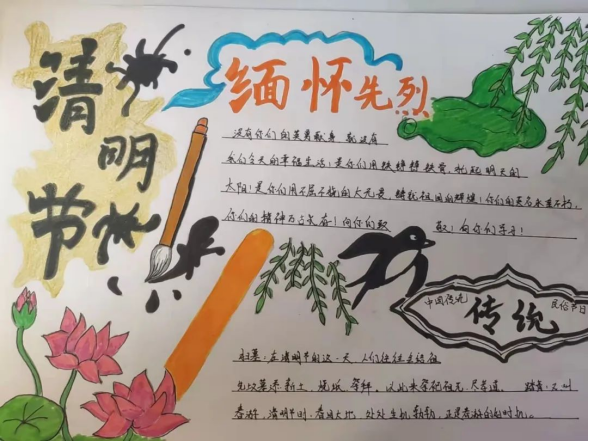 清明节
缅怀先烈
没有你们的英勇献身 就没有
我们今天的幸福生活!是你们用铁臂
太阳!是你们用不屈不挠的大无畏, 铸就祖国的辉煌!你们的英名永垂不朽,
你们的精神万古长存!向你们致 敬!向你们学习!
中国传统
传统
民俗节日
扫墓:在清明节的这一天,人们往往去给祖
先以墓添新土、 祭拜, 以此来
春游, 清明时节,春回大地, 处处生机勃勃, 正是春游的好时机。